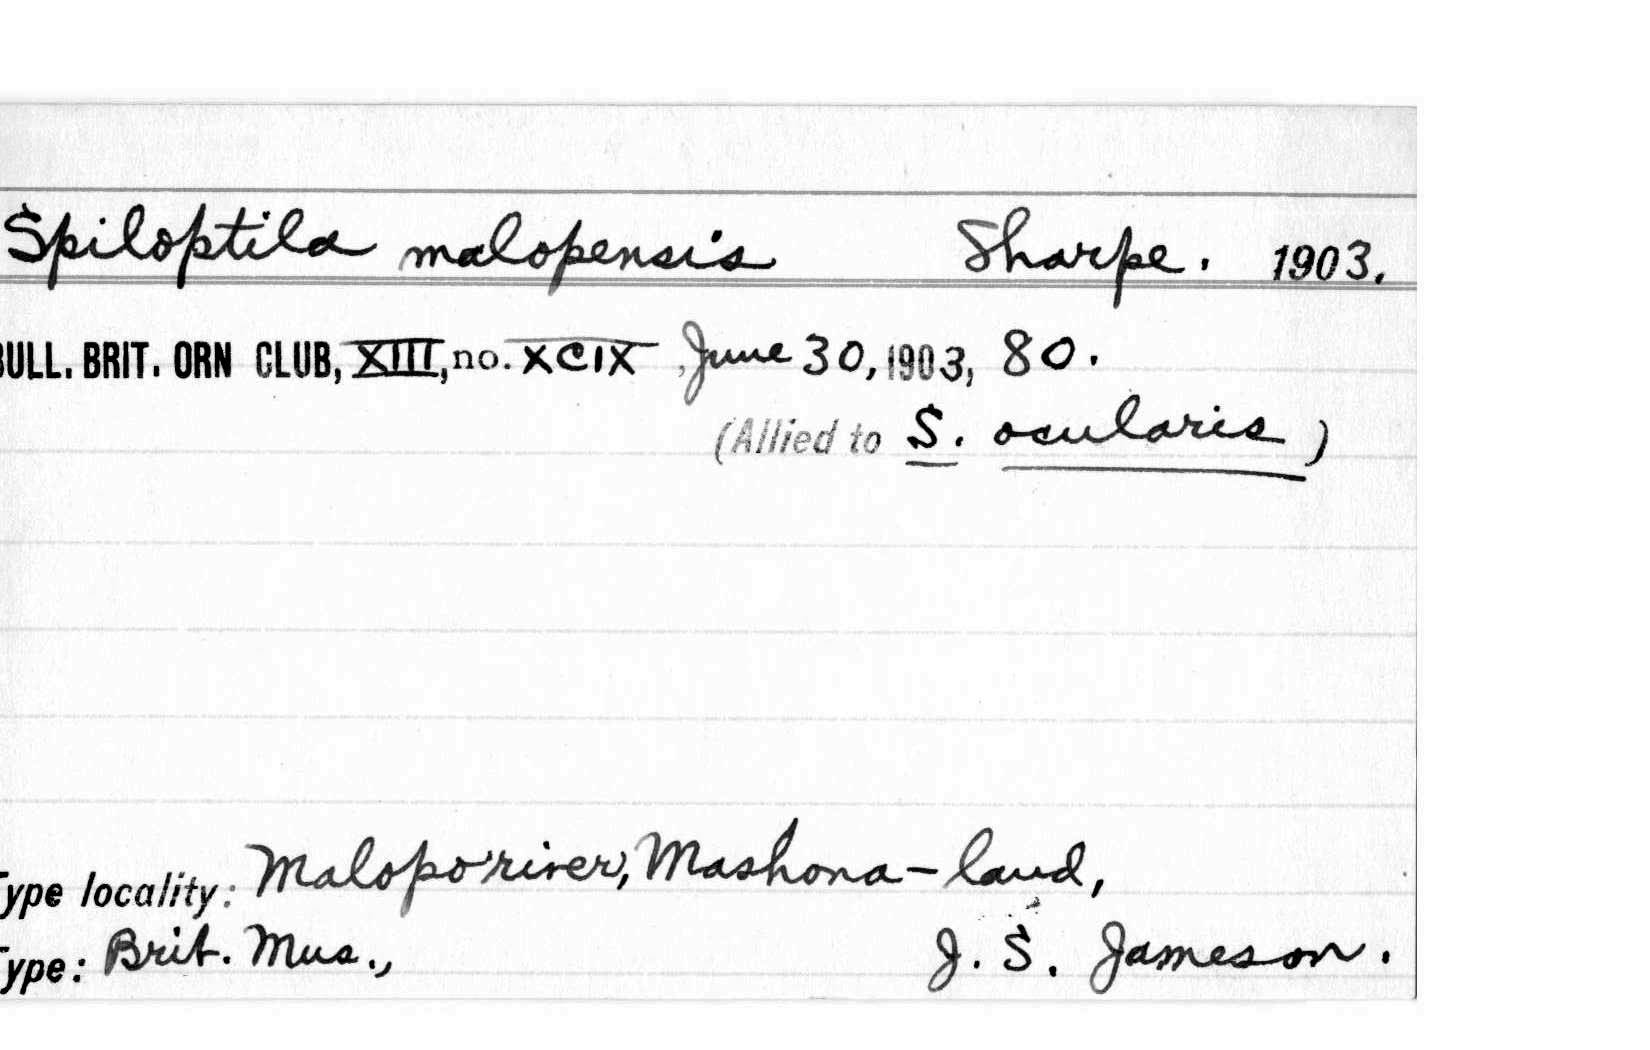 Spiloptila malopensis Sharpe. 1903.
BULL. BRIT. ORN CLUB, XIII, no. XCIX, June 30, 1903, 80.
(Allied to S. ocularis)
Type locality: Malopo river, Mashona-land,
Type: Brit. Mus., J. S. Jameson.